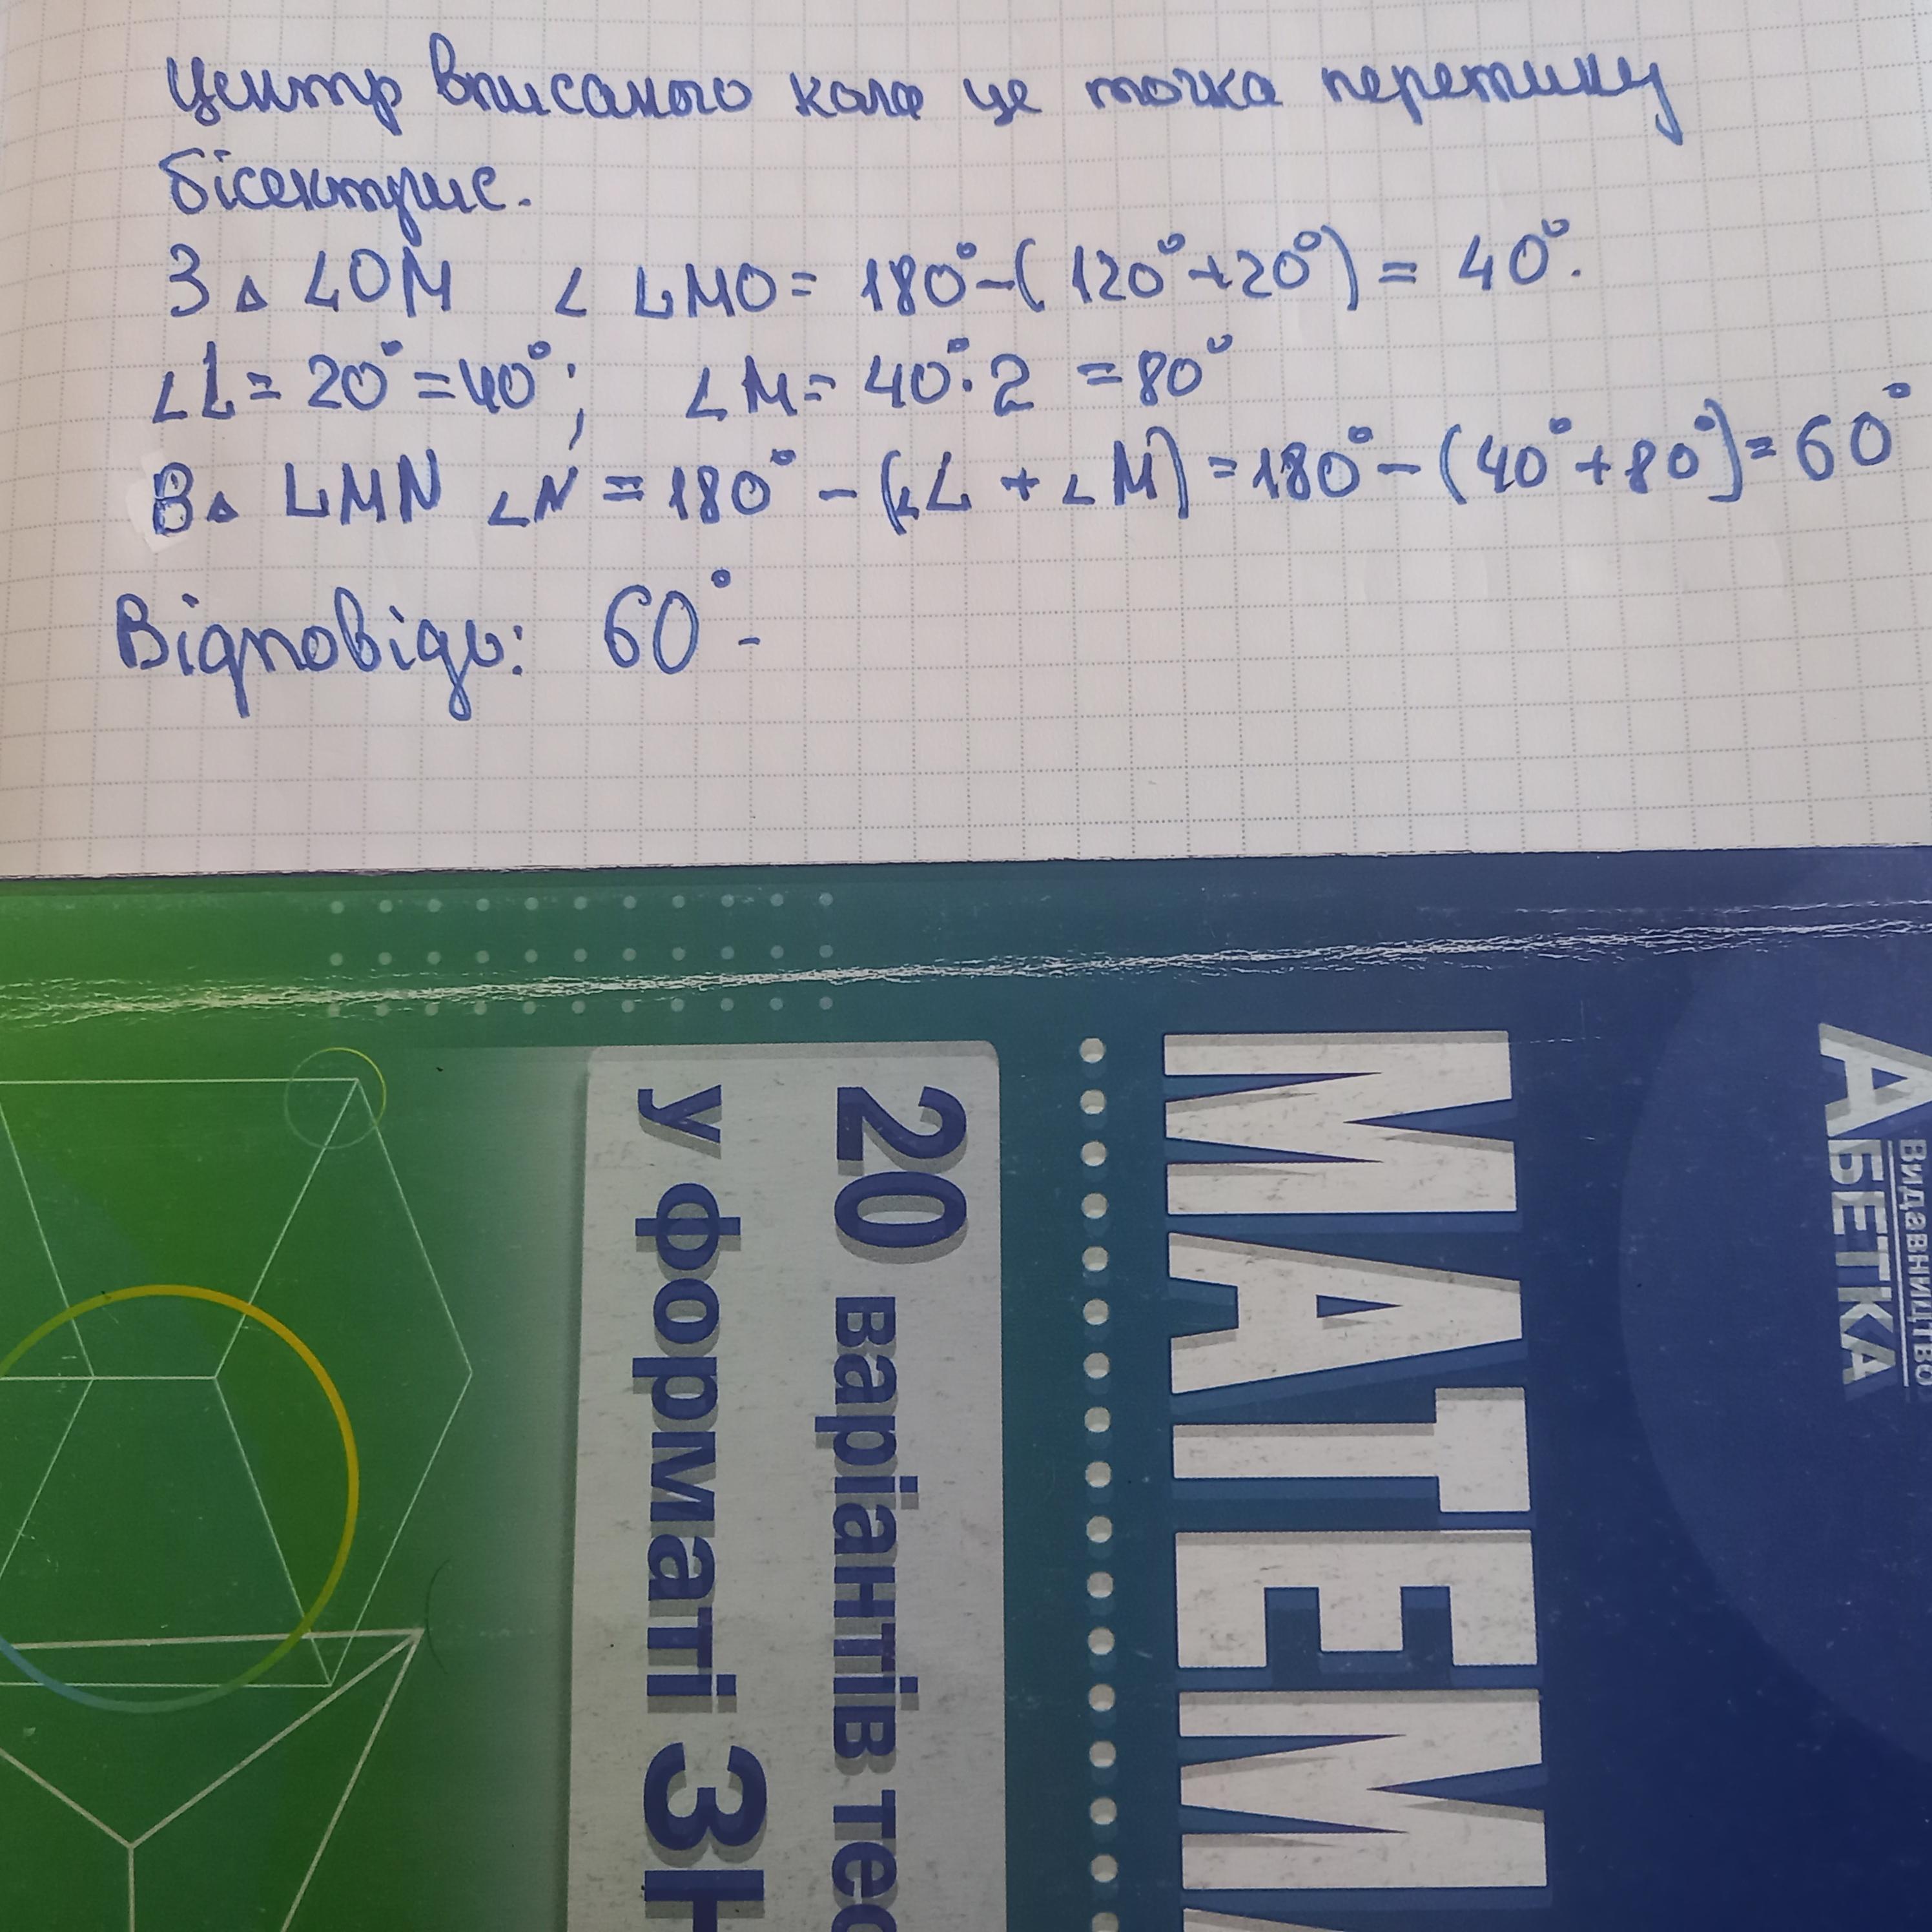 Центр вписаного кола це точка перетину
бісектрис.
З △ LOM ∠ LMO = 180° - ( 120° + 20° ) = 40°.
∠L = 20° = 40° ; ∠ M = 40° · 2 = 80°
В △ LMN ∠N = 180° - (∠L + ∠M) = 180° - (40° + 80°) = 60°
Відповідь: 60° -
Видавництво
АБЕТКА
МАТЕМ
20 варіантів тес
у форматі ЗН